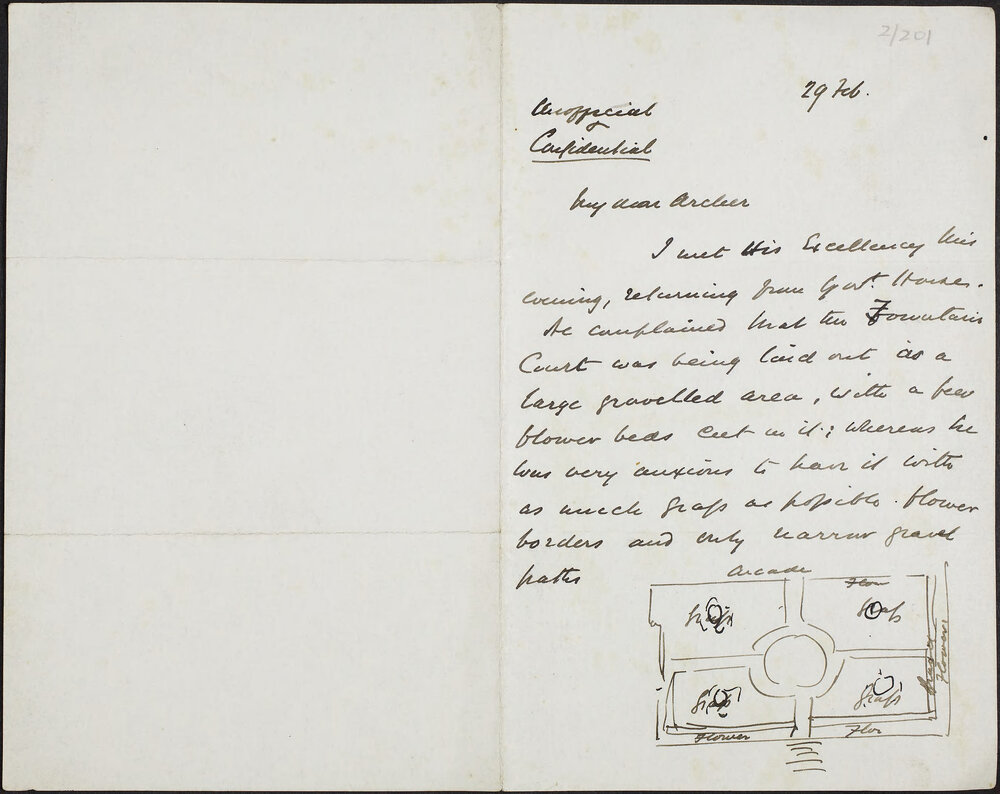 2/201
29 Feb.
Unofficial
&
Confidential
My dear Archer
I met His Excellency this
evening, returning from Govt. House.
He complained that the Fountain
Court was being laid out as a
large gravelled area, with a few
flower beds cut in it; whereas he
was very anxious to have it with
as much grass as possible. flower
borders and only narrow gravel
paths
Arcade
Flow
Grass
Grass
Flower
Grass
Grass
Flower
Flor